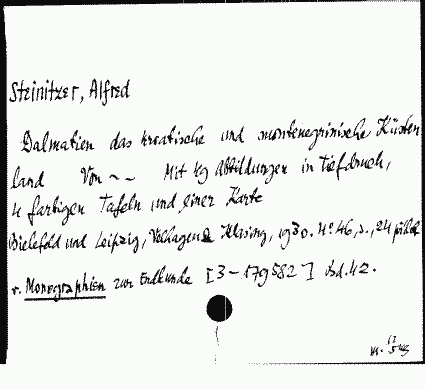 Steinitzer, Alfred
Dalmatien das kroatische und montenegrinische Küsten
land Von ~ ~ Mit 49 Abbildungen in Tiefdruck,
4 farbigen Tafeln und einer Karte
Bielefeld und Leipzig, Velhagen & Klasing, 1930. 4° 46, s., 24
v. Monographien zur Erdkunde [3-179582] Bd. 42.